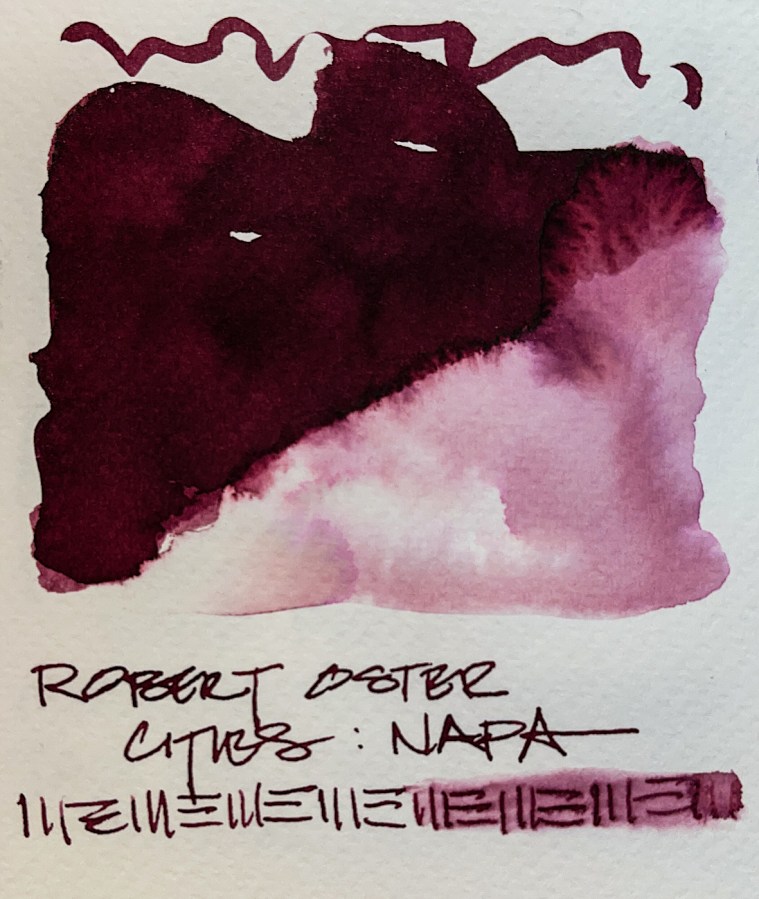 ROBERT OSTER
CITIES: NAPA